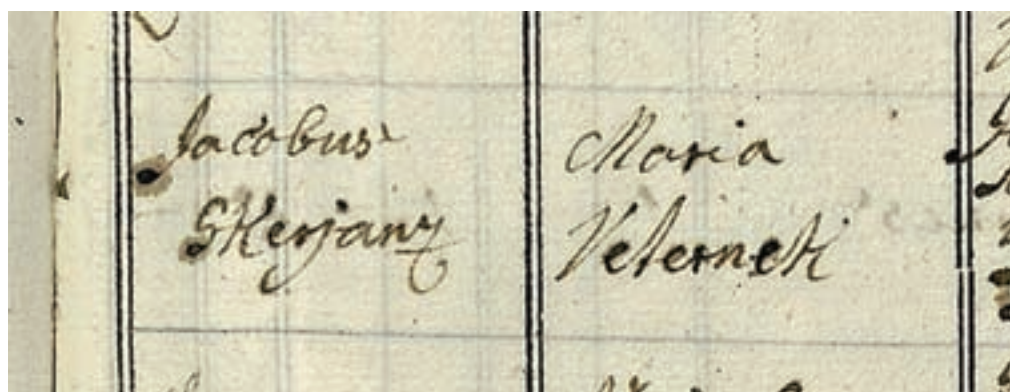 Jacobus
Skerjanz
Maria
Veternek